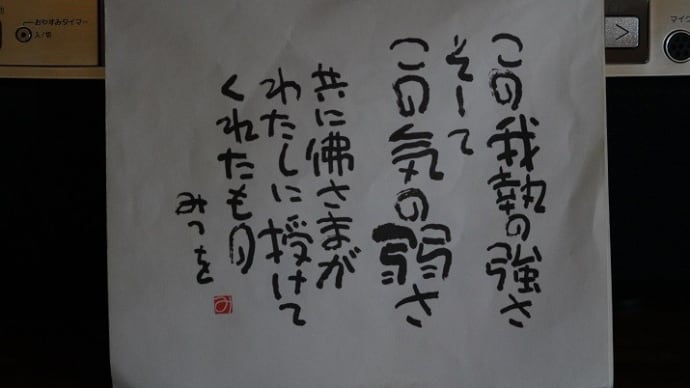 この我執の強さ
そして
この気の弱さ
共に佛さまが
わたしに授けて
くれたもの
みつを
おやすみタイマー
入/切
マイク